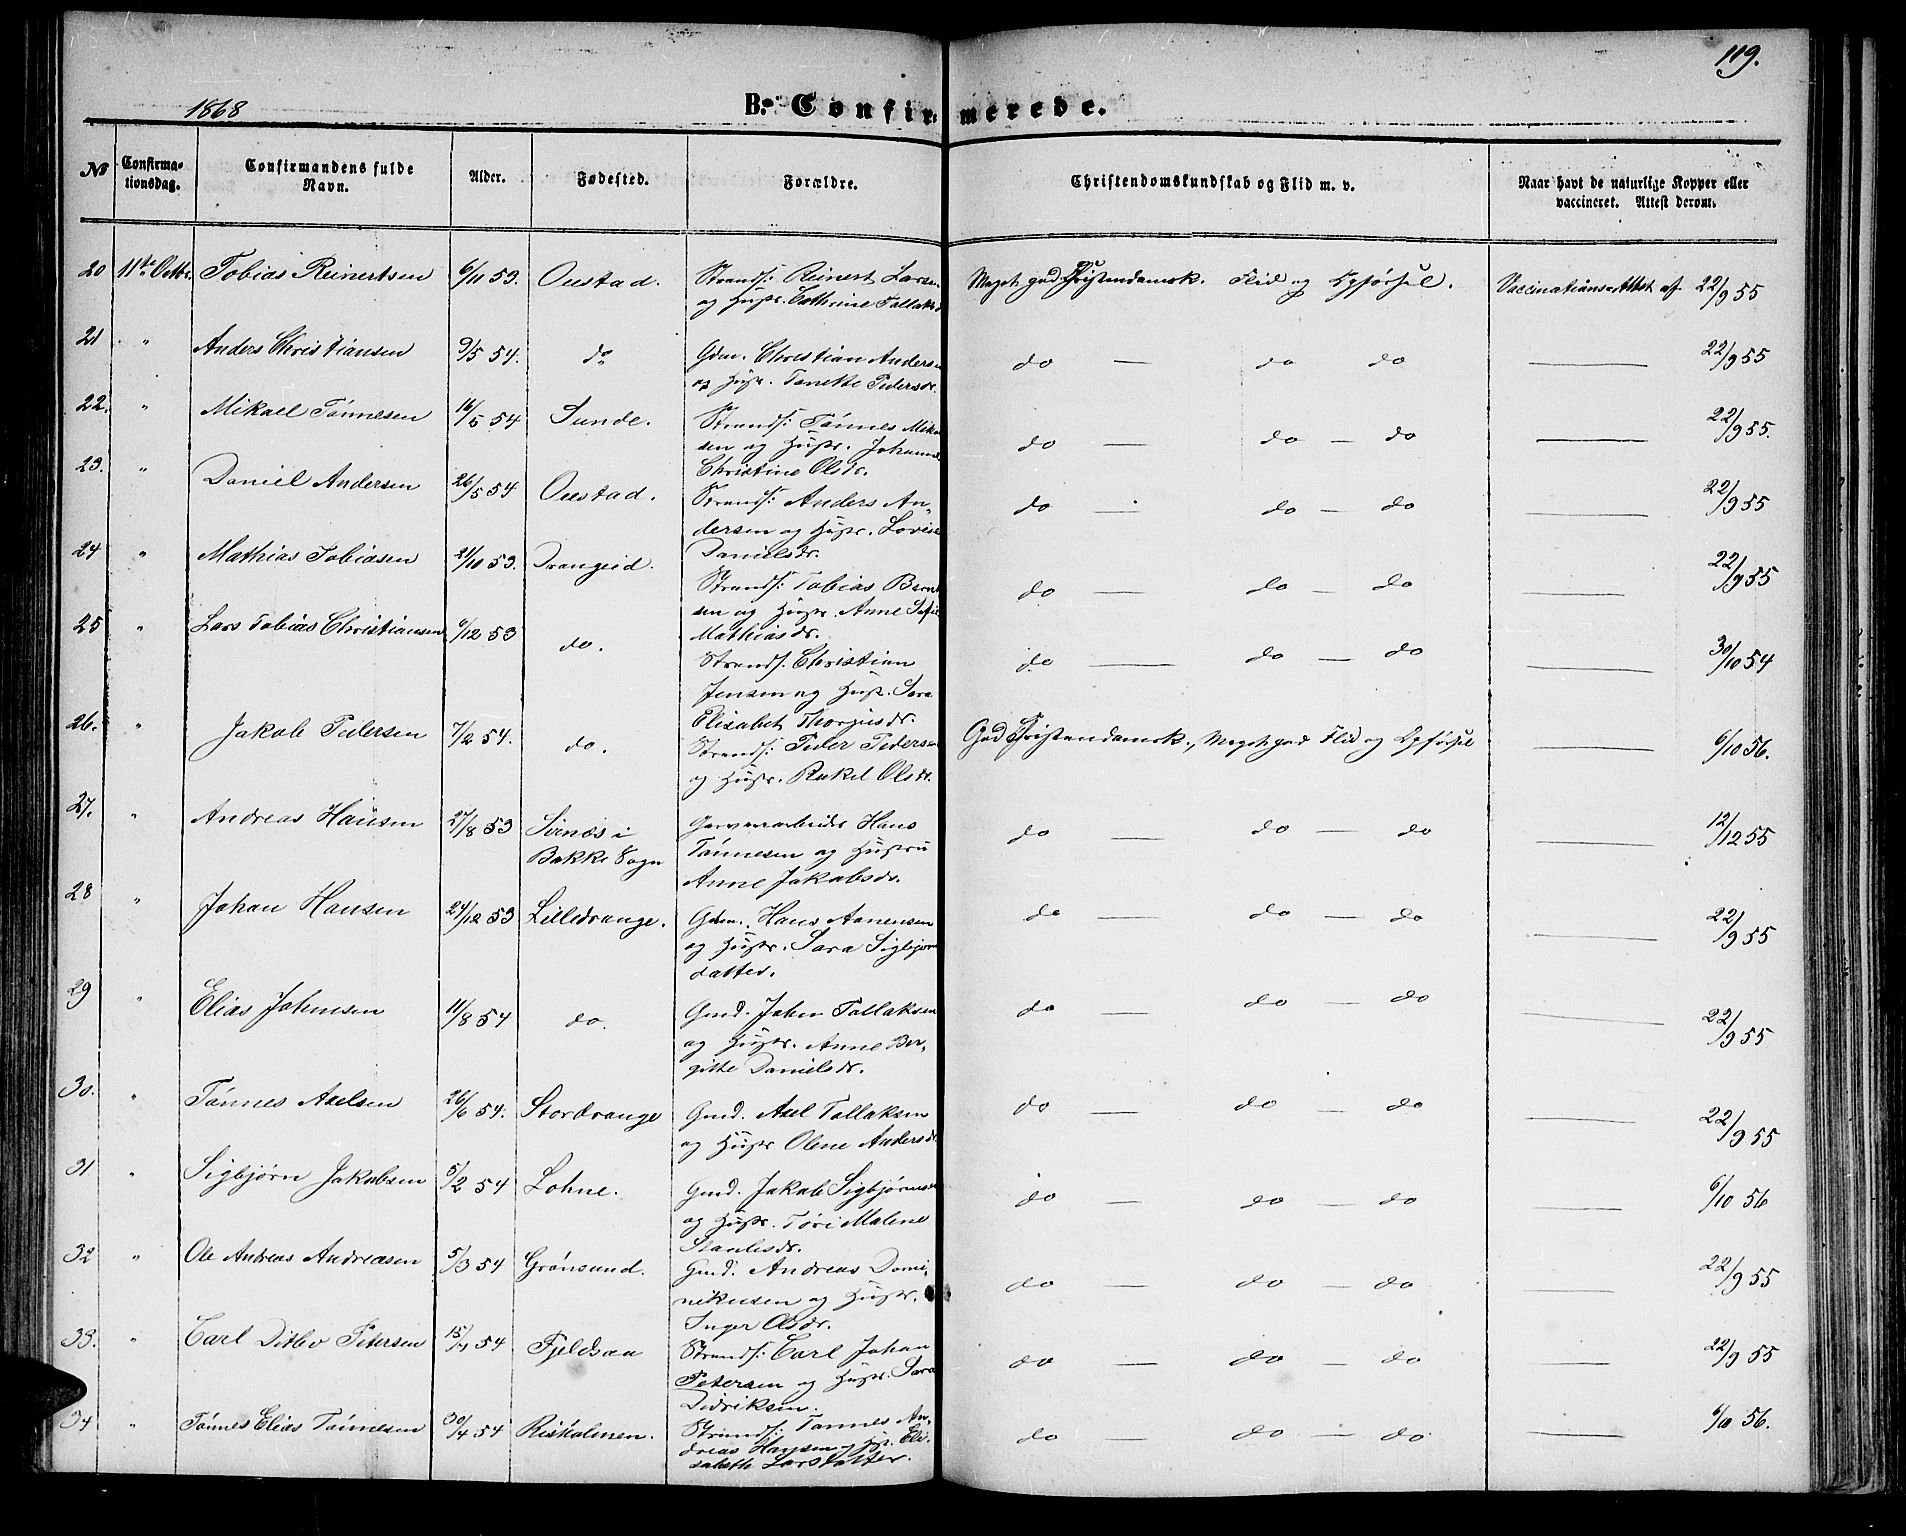 119.
1868
B. Confirmerede.
№
Confirma-
tionsdag.
Confirmandens fulde
Navn.
Alder.
Fødested.
Forældre.
Christendomskundskab og Flid m. v.
Naar havt de naturlige Kopper eller
vaccineret. Attest derom.
20 11te Octbr. Tobias Reinertsen 6/11 53. Oustad. Strands: Reinert Larsen
og Hustr. Cathrine Tollaksd
Meget god Christendomsk. Flid og Opførsel. Vaccinations-Attest af 22/9 55
21 " Anders Christiansen 9/5 54. do Gdm. Christian Andersen
og Hustr. Tonette Pedersdr.
do — do do — 22/9 55
22. " Mikael Tönnesen 16/5 54 Sunde. Strands: Tönnes Mika
sen og Hustr. Johanne
Christine Olsdr.
do — do — do — 22/9 55.
23. " Daniel Andersen 26/5 54 Oustad. Strands: Anders An-
dersen og Hustr. Lovise
Danielsdr.
do — do — do 22/9 55
24 " Mathias Tobiasen 21/10 53. Drangeid. Strands: Tobias Bernt
sen og Hustr. Anne Sofie
Mathiasdr.
do — do — do — 22/9 55
25 " Lars Tobias Christiansen 6/12 53 do. Strands. Christian
Jensen og Hustr. Sara
Elisabet Thorjusdr.
do — do — do — 30/10 54
26. " Jakob Pedersen 7/2 54. do. Strands: Peder Pedersen
og Hustr. Rakel Olsdr.
God Christendomsk., Meget god Flid og Opførsel — 6/10 56.
27. " Andreas Hansen 27/8 53 Sirnæs i
Bakke Sogn
Garverarbeider Hans
Tönnesen og Hustru
Anne Jakobsdr.
do — do — do — 12/12 55
28 " Johan Hansen 24/12 53 Lilledrange. Gdm. Hans Aanensen
og Hustr. Sara Sigbjørns
datter.
do — do — do — 22/9 55
29 " Elias Johnsen 11/8 54 do. Gmd. John Tollaksen
og Hustr. Anne Ber-
gitte Danielsdr.
do — do — do — 22/9 55
30. " Tönnes Axelsen 26/6 54. Stordrange Gmd. Axel Tollaksen
og Hustr Olene Andersdr
do — do — do 22/9 55
31 " Sigbjørn Jakobsen 5/2 54 Lohne. Gmd. Jakob Sigbjørnsen
og Hustr. Töri Malene
do — do — do — 6/10 56
32 " Ole Andreas Andreasen 5/3 54 Grönsund. Gmd. Andreas Domi-
nikusen og Hustr.
Inger Olsdr.
do — do — do — 22/9 55
33. " Carl Ditlev Petersen 15/7 54 Fjeldsaa Strands: Carl Johan
Petersen og Hustr. Sara
Didriksen.
do — do — do — 22/9 55
34 " Tönnes Elias Tönnesen 30/4 54 Risholmen. Strands: Tönnes An-
dreas Hansen og Hst. Eli-
sabeth Larsdatter.
do — do — do — 6/10 56.